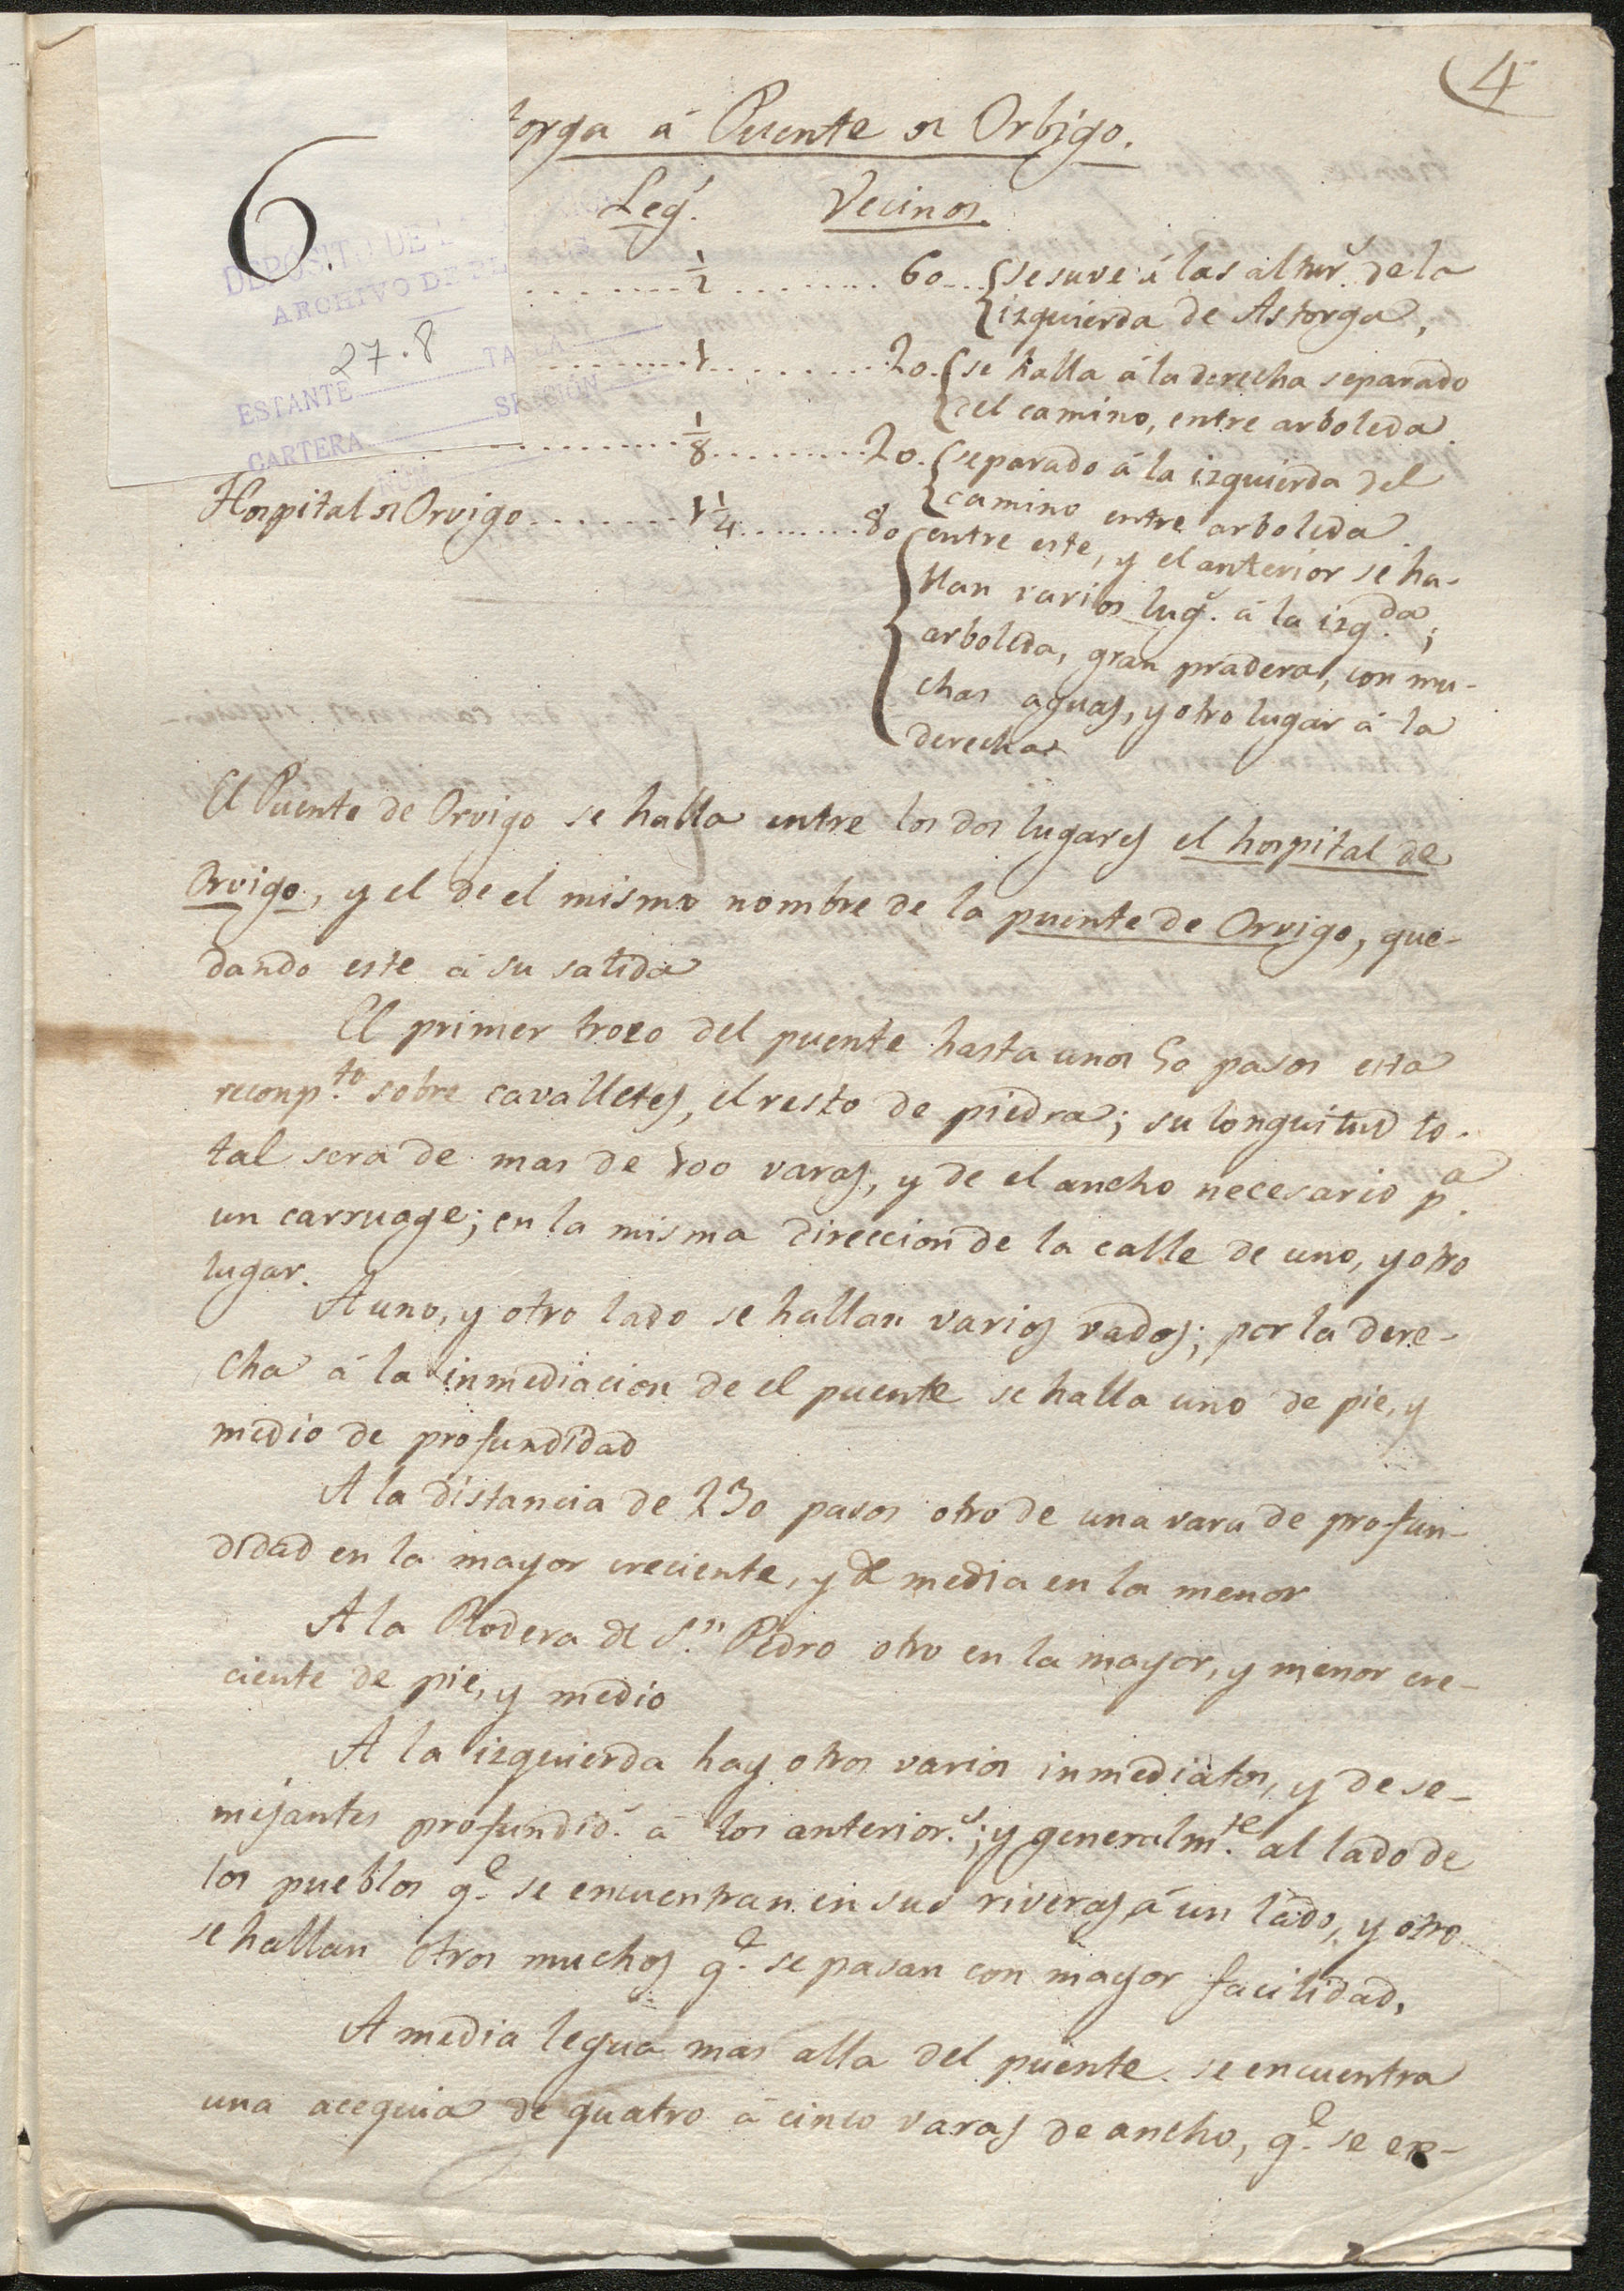 4
torga á Puente de Orbigo.
6.
Leg.s Vecinos.
DEPOSITO DE L
ARCHIVO DE PL
27.8
ESTANTE TABLA
CARTERA SECCIÓN
1/2 60 se suve á las altur.s de la
izquierda de Astorga,
1 20. se halla á la derecha separado
del camino, entre arboleda.
1/8 20. separado á la izquierda del
camino entre arboleda.
Hospital de Orvigo 1 1/4 80 entre este, y el anterior se ha-
llan varios lug.s á la izq.da;
arboleda, gran pradera, con mu-
chas aguas, y otro lugar á la
derecha
El Puente de Orvigo se halla entre los dos lugares el hospital de
Orvigo, y el de el mismo nombre de la puente de Orvigo, que-
dando este á su salida
El primer trozo del puente hasta unos 50 pasos esta
recomp.to sobre cavalletes, el resto de piedra; su longuitud to-
tal sera de mas de 100 varas, y de el ancho necesario p.a
un carruage; en la misma direccion de la calle de uno, y otro
lugar.
A uno, y otro lado se hallan varios vados; por la dere-
cha á la inmediacion de el puente se halla uno de pie, y
medio de profundidad
A la distancia de 230 pasos otro de una vara de profun-
didad en la mayor creciente, y de media en la menor
A la Rodera de S.n Pedro otro en la mayor, y menor cre-
ciente de pie, y medio
A la izquierda hay otros varios inmediatos, y de se-
mejantes profundid.s á los anterior.s; y generalm.te al lado de
los pueblos q.e se encuentran en sus riveras á un lado, y otro
se hallan otros muchos q.e se pasan con mayor facilidad,
A media legua mas alla del puente se encuentra
una acequia de quatro á cinco varas de ancho, q.e se en-